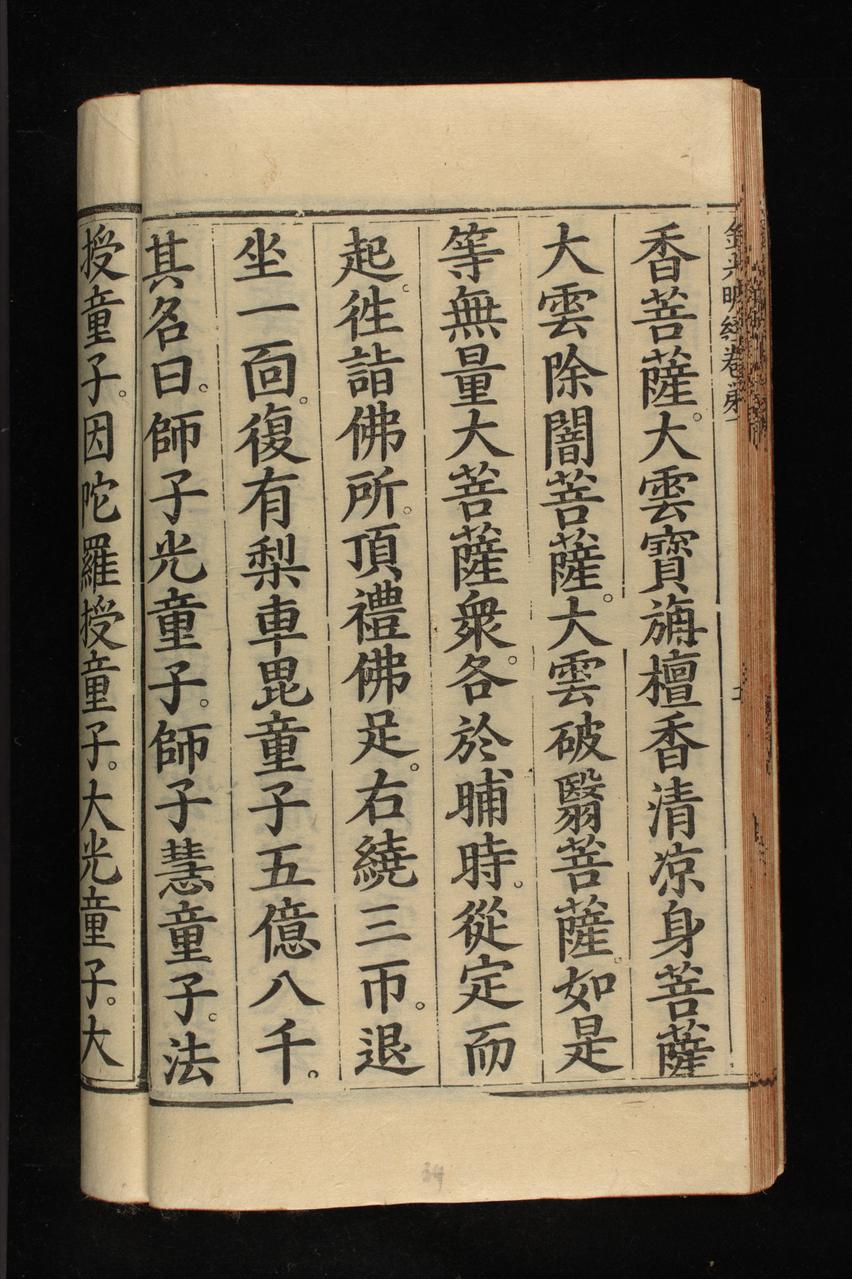 金光明經卷第一
香菩薩。大雲寶旃檀香清凉身菩薩
大雲除闇菩薩。大雲破翳菩薩。如是
等無量大菩薩衆。各於晡時。從定而
起。徃詣佛所。頂禮佛足。右繞三帀。退
坐一面。復有梨車毘童子五億八千。
其名曰。師子光童子。師子慧童子。法
授童子。因陀羅授童子。大光童子。大